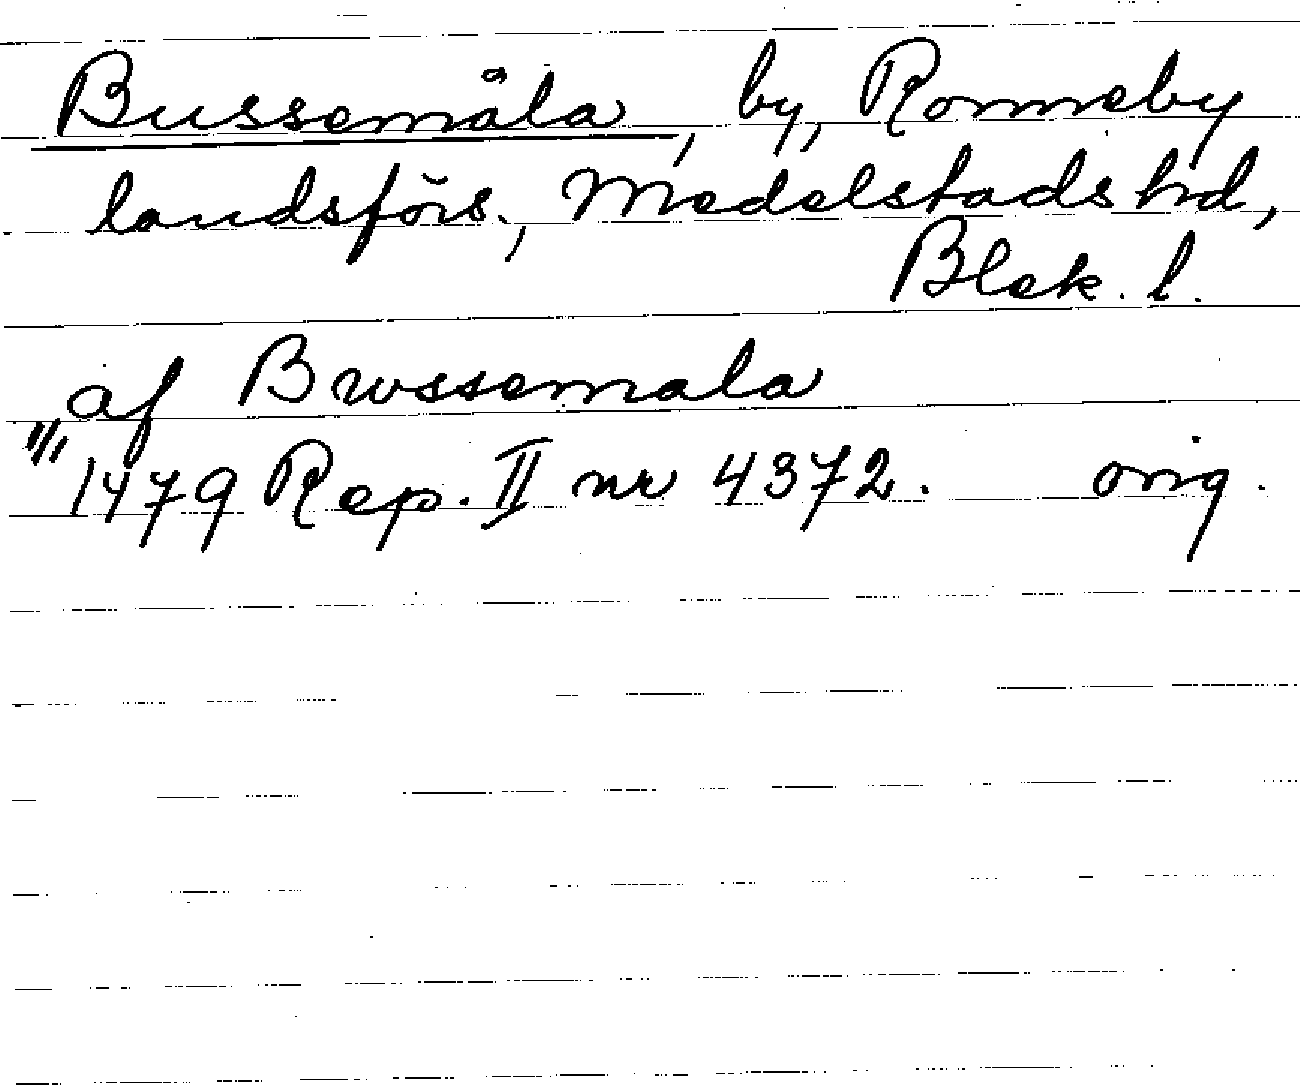 Bussemåla, by, Ronneby
landsförs., Medelstads hd,
Blek. l.
af Bwssemala
1479 Rep. II nr 4372. orig.